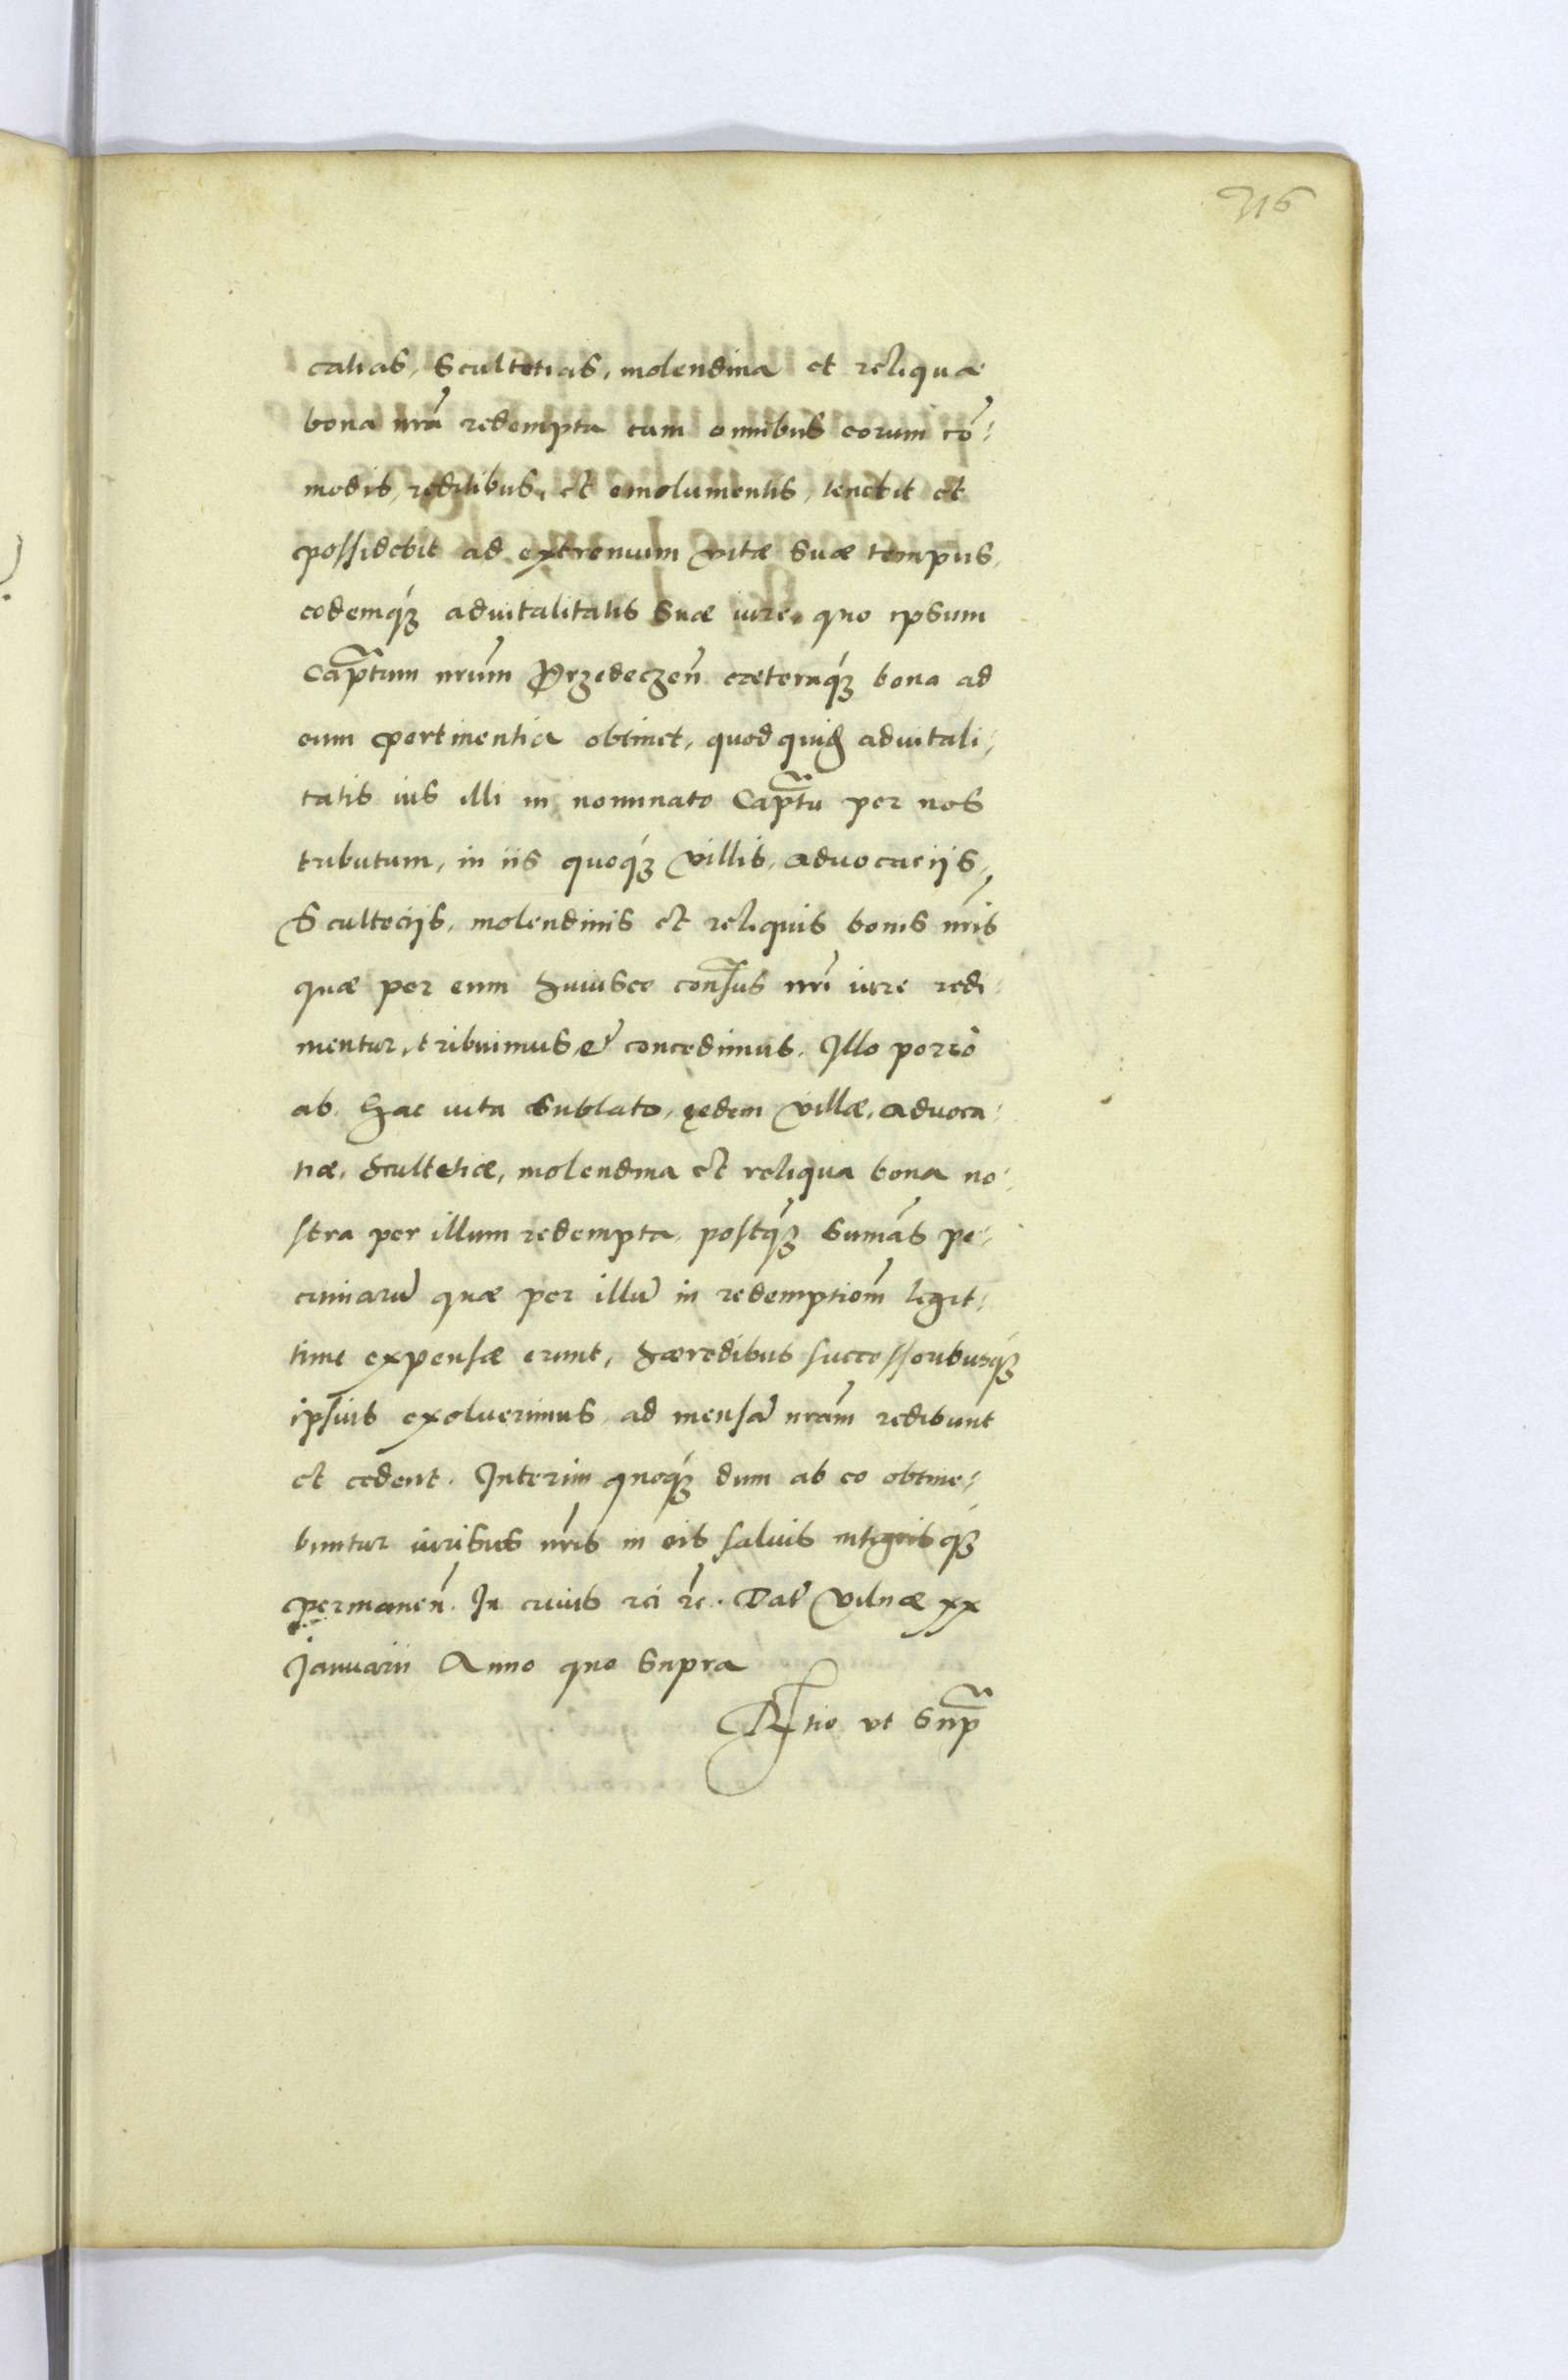 716
catias, Scultetias, molendina et reliqua
bona nr̃a redempta cum omnibus eorum cõ:
modis, reditibus, et emolumentis, tenebit et
possidebit ad extremum vitæ suæ tempus,
eodemq́ꝫ aduitalitatis suæ iure, quo ipsum
Cap̃tum nr̃um Przedeczeñ. cæteraq́ꝫ bona ad
eum pertinentia obtinet, quod quidē aduitali:
tatis ius illi in nominato Cap̃tu per nos
tributum, in iis quoq́ꝫ villis, aduocaciis,
Sculteciis, molendinis et reliquis bonis nr̃is
quæ per eum huiusce conse͂sus nr̃i iure redi:
mentur, tribuimus et concedimus. Illo porrò
ab hac vita sublato, eædem villæ, aduoca:
tiæ, Scultetiæ, molendina et reliqua bona no:
stra per illum redempta, postq́ꝫ sum̃as pe:
cuniarũ quæ per illũ in redemptioñm legit:
time expensæ erunt, hæredibus successoribusq́ꝫ
ipsius exoluerimus, ad mensã nr̃am redibunt
et cedent. Interim quoq́ꝫ dum ab eo obtine:
buntur iuribus nr̃is in eis saluis integris q́ꝫ
permaneñ. In cuius rei rc̃. Dat̃ Vilnæ xx
Januarii Anno quo supra
Rtio vt Sup̃